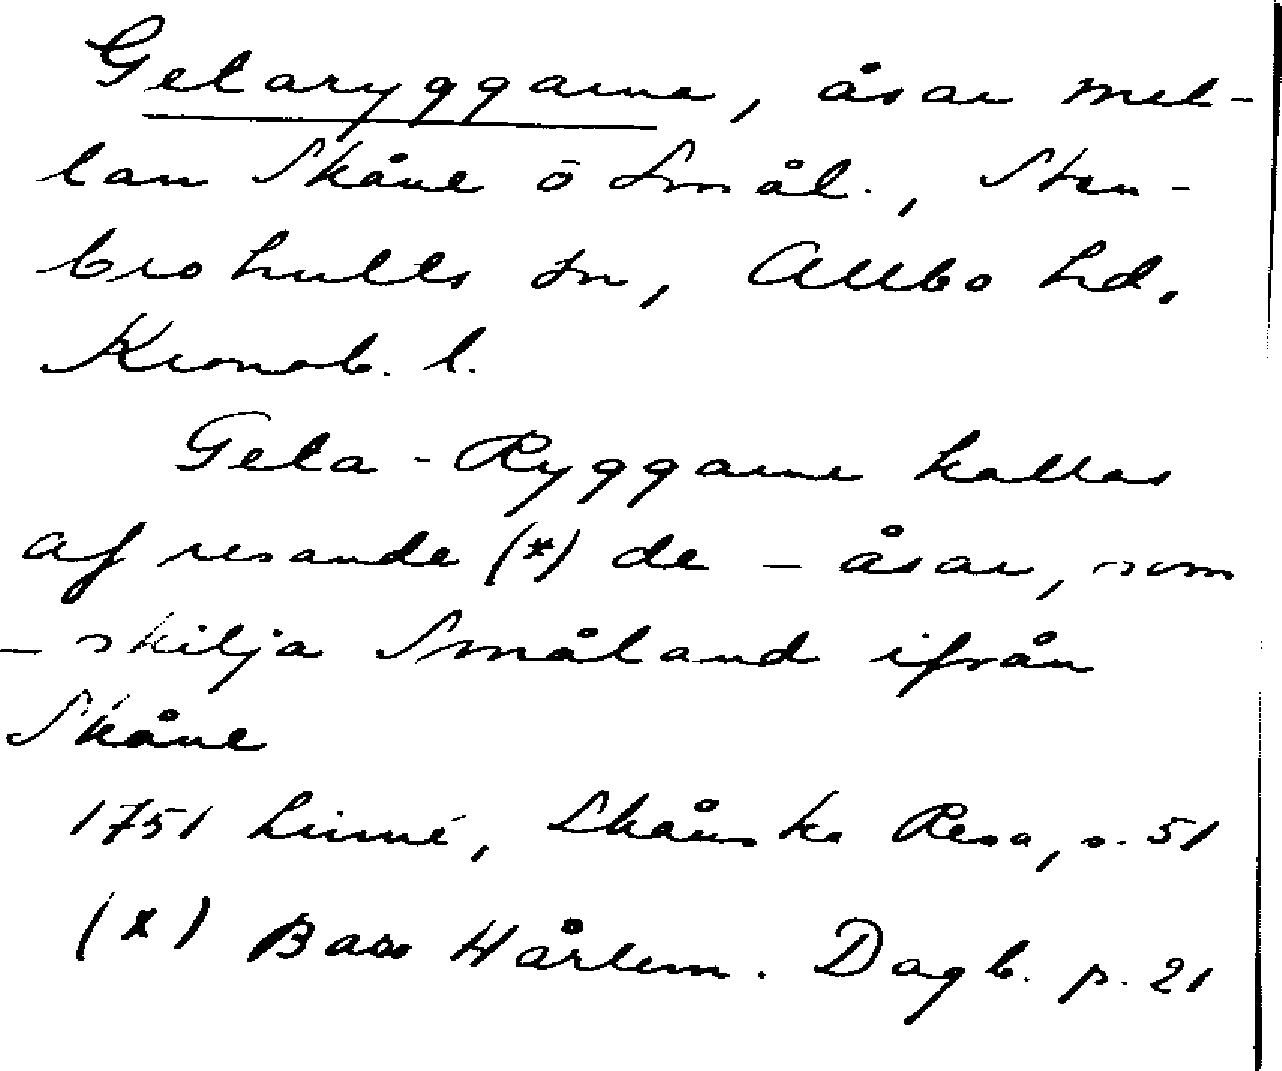 Gelaryggarne, åsar mel-
lan Skåne o Smål., Sten-
brohults sn, Allbo hd,
Kronob. l.
Gela-Ryggarne kallas
af resande (*) de – åsar, som
– skilja Småland ifrån
Skåne
1751 Linné, Skånska Resa, s. 51
(*) Bar. Hårlem. Dagb. p. 21